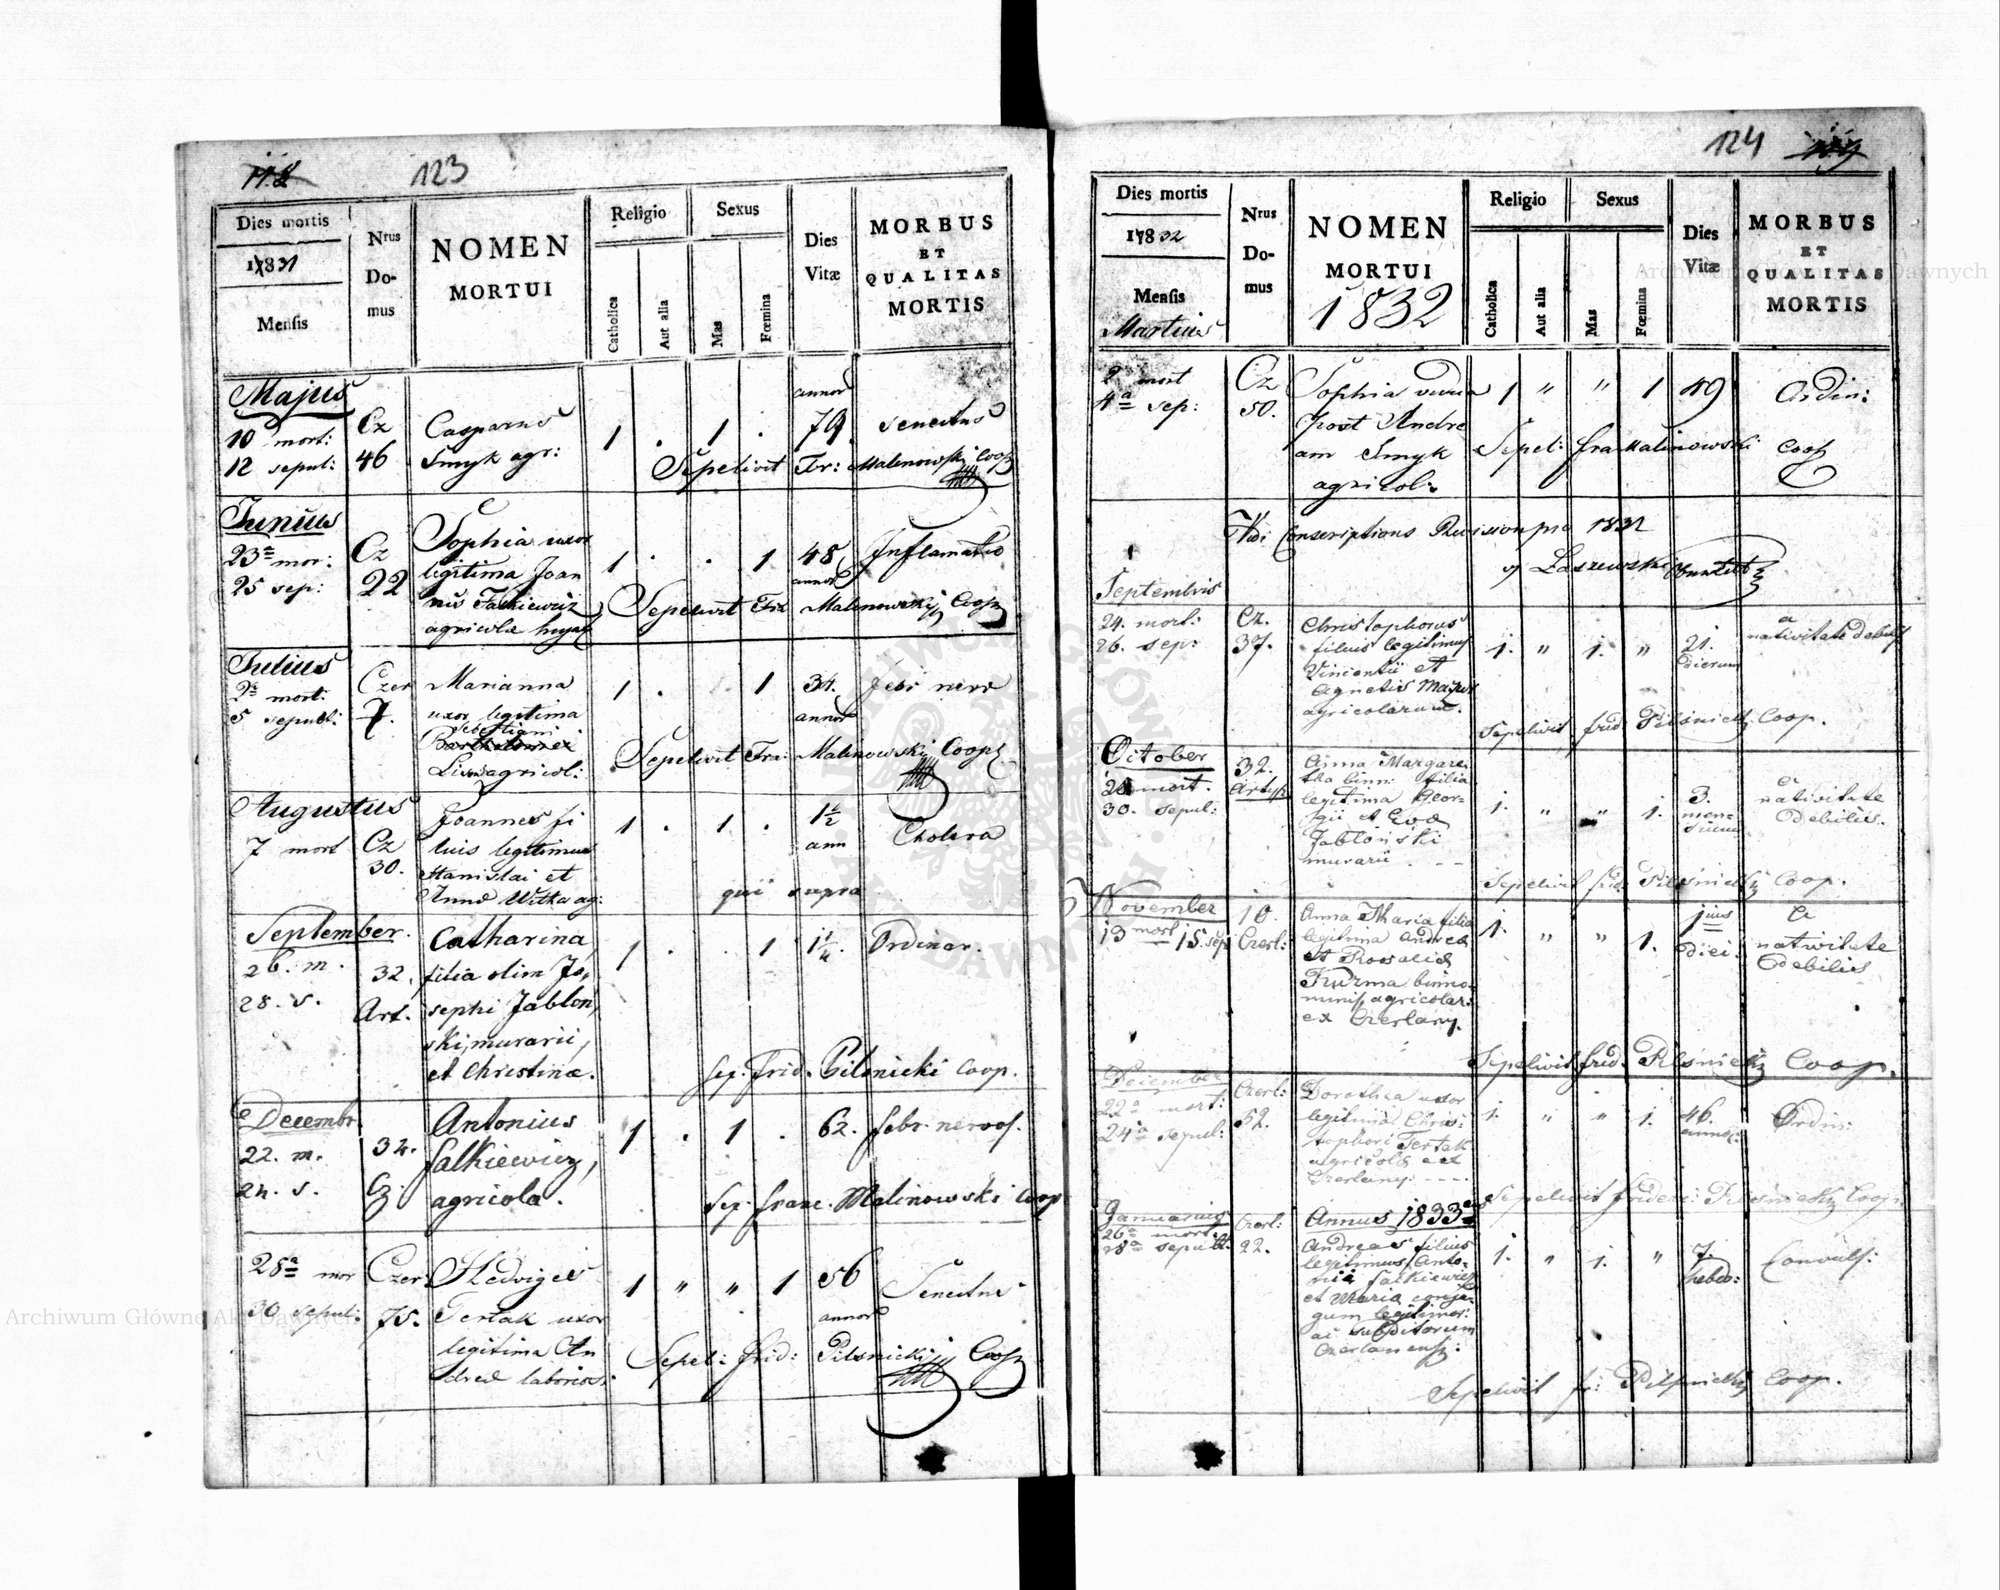 123
Dies mortis
1831
Mensis
Nrus
Do-
mus
NOMEN
MORTUI
Religio
Catholica
Aut alia
Sexus
Mas
Fœmina
Dies
Vitæ
MORBUS
ET
QUALITAS
MORTIS
Majus
10 mort:
12 sepul:
Cz
46
Casparus
Smyk agr:
1 . 1 .
annor
79
Senectus
Sepelivit Fr: Malinowski Coop
Junius
23 mor:
25 sep:
Cz
22
Sophia uxor
legitima Joan
nis Falkiewicz
agricolæ
1 . . 1
48
annor
Inflamatio
Sepelivit Malinowskij Coop
Julius
2 mort:
5 sepult:
Czer
7.
Marianna
uxor legitima
Sebestiani
Bartholomei
agricol:
1 . . 1
34.
annor
febr nerv
Sepelivit Fra: Malinowskij Coop
Augustus
7 mort
Cz
30.
Joannes fi
lius legitimus
Stanislai et
Annæ Witka ag:
1 . 1 .
1 1/2
ann
Cholera
qui supra
September.
26. m.
28. s.
32.
Art.
Catharina,
filia olim Jo,
sephi Jablon,
ski, murarii,
et Christinæ.
1 . . 1
1 1/4.
Ordinar.
Sep. Frid. Pilsnicki Coop.
Decembr
22. m.
24. s.
32.
Cz.
Antonius
Falkiewicz,
agricola.
1 . 1 .
62.
febr. nervos.
Sep. franc. Malinowski Coop
28a mor
30 sepul:
Czer
75.
Hedviges
Tertak uxor
legitima An
dreæ laboriosi
1 " " 1
56
annor
Senectus
Sepel: frid: Pilsnickij Coop
124
Dies mortis
1832
Mensis
Martius
Nrus
Do-
mus
NOMEN
MORTUI
1832
Religio
Catholica
Aut alia
Sexus
Mas
Fœmina
Dies
Vitæ
MORBUS
ET
QUALITAS
MORTIS
2 mort
4a sep:
Cz
50.
Sophia vidua
post Andre
am Smyk
agricol:
1 " " 1
49
Ordin:
Sepel: fra Malinowski Coop
Conscriptions Revision pro 1832
Laszewski
Septembris
24. mort:
26. sep:
Cz.
37.
Christophorus
filius legitimus
Vincentii et
Agnetis
agricolarum.
1. " 1. "
21.
dierum
a
nativitate debilis
Sepelivit frid. Pilsnicki Coop.
October
mort.
30. sepul:
32.
Artys
Anna Margare-
tha binn: filia
legitima Geor-
gii et Evæ
Jabłoński
murarii
1. " " 1.
3.
men-
sium
a
nativitate
debilis.
Sepelivit frid. Pilsnicki Coop.
November
13 mort 15. sep
10.
Czerl:
Anna Maria filia
legitima Andreæ
et Rosaliæ
Kuzma binno-
minis, agricolar:
ex Czerlany.
1. " " 1.
jus
diei
a
nativitate
debilis
Sepelivit frid. Pilsnicki Coop.
December
22a mort:
24a sepul:
Czerl:
52.
Dorothea uxor
legitima Chris-
tophori Tertak
agricolæ ex
Czerlany.
1. " " 1.
46.
annor:
Ordin:
Sepelivit frideri: Pilsnicki Coop.
Januarius
26a mort
28a sepult.
Czerl:
22.
Annus 1833
Andreas filius
legitimus Anto-
nii Falkiewicz
et Maria conju-
gum legitimor:
ac subditorum
Czerlanensz:
1. " 1. "
7.
hebdo:
Convuls:
Sepelivit fr: Pilsnicki Coop.
Archiwum Główne Akt Dawnych
Archiwum Główne Akt Dawnych